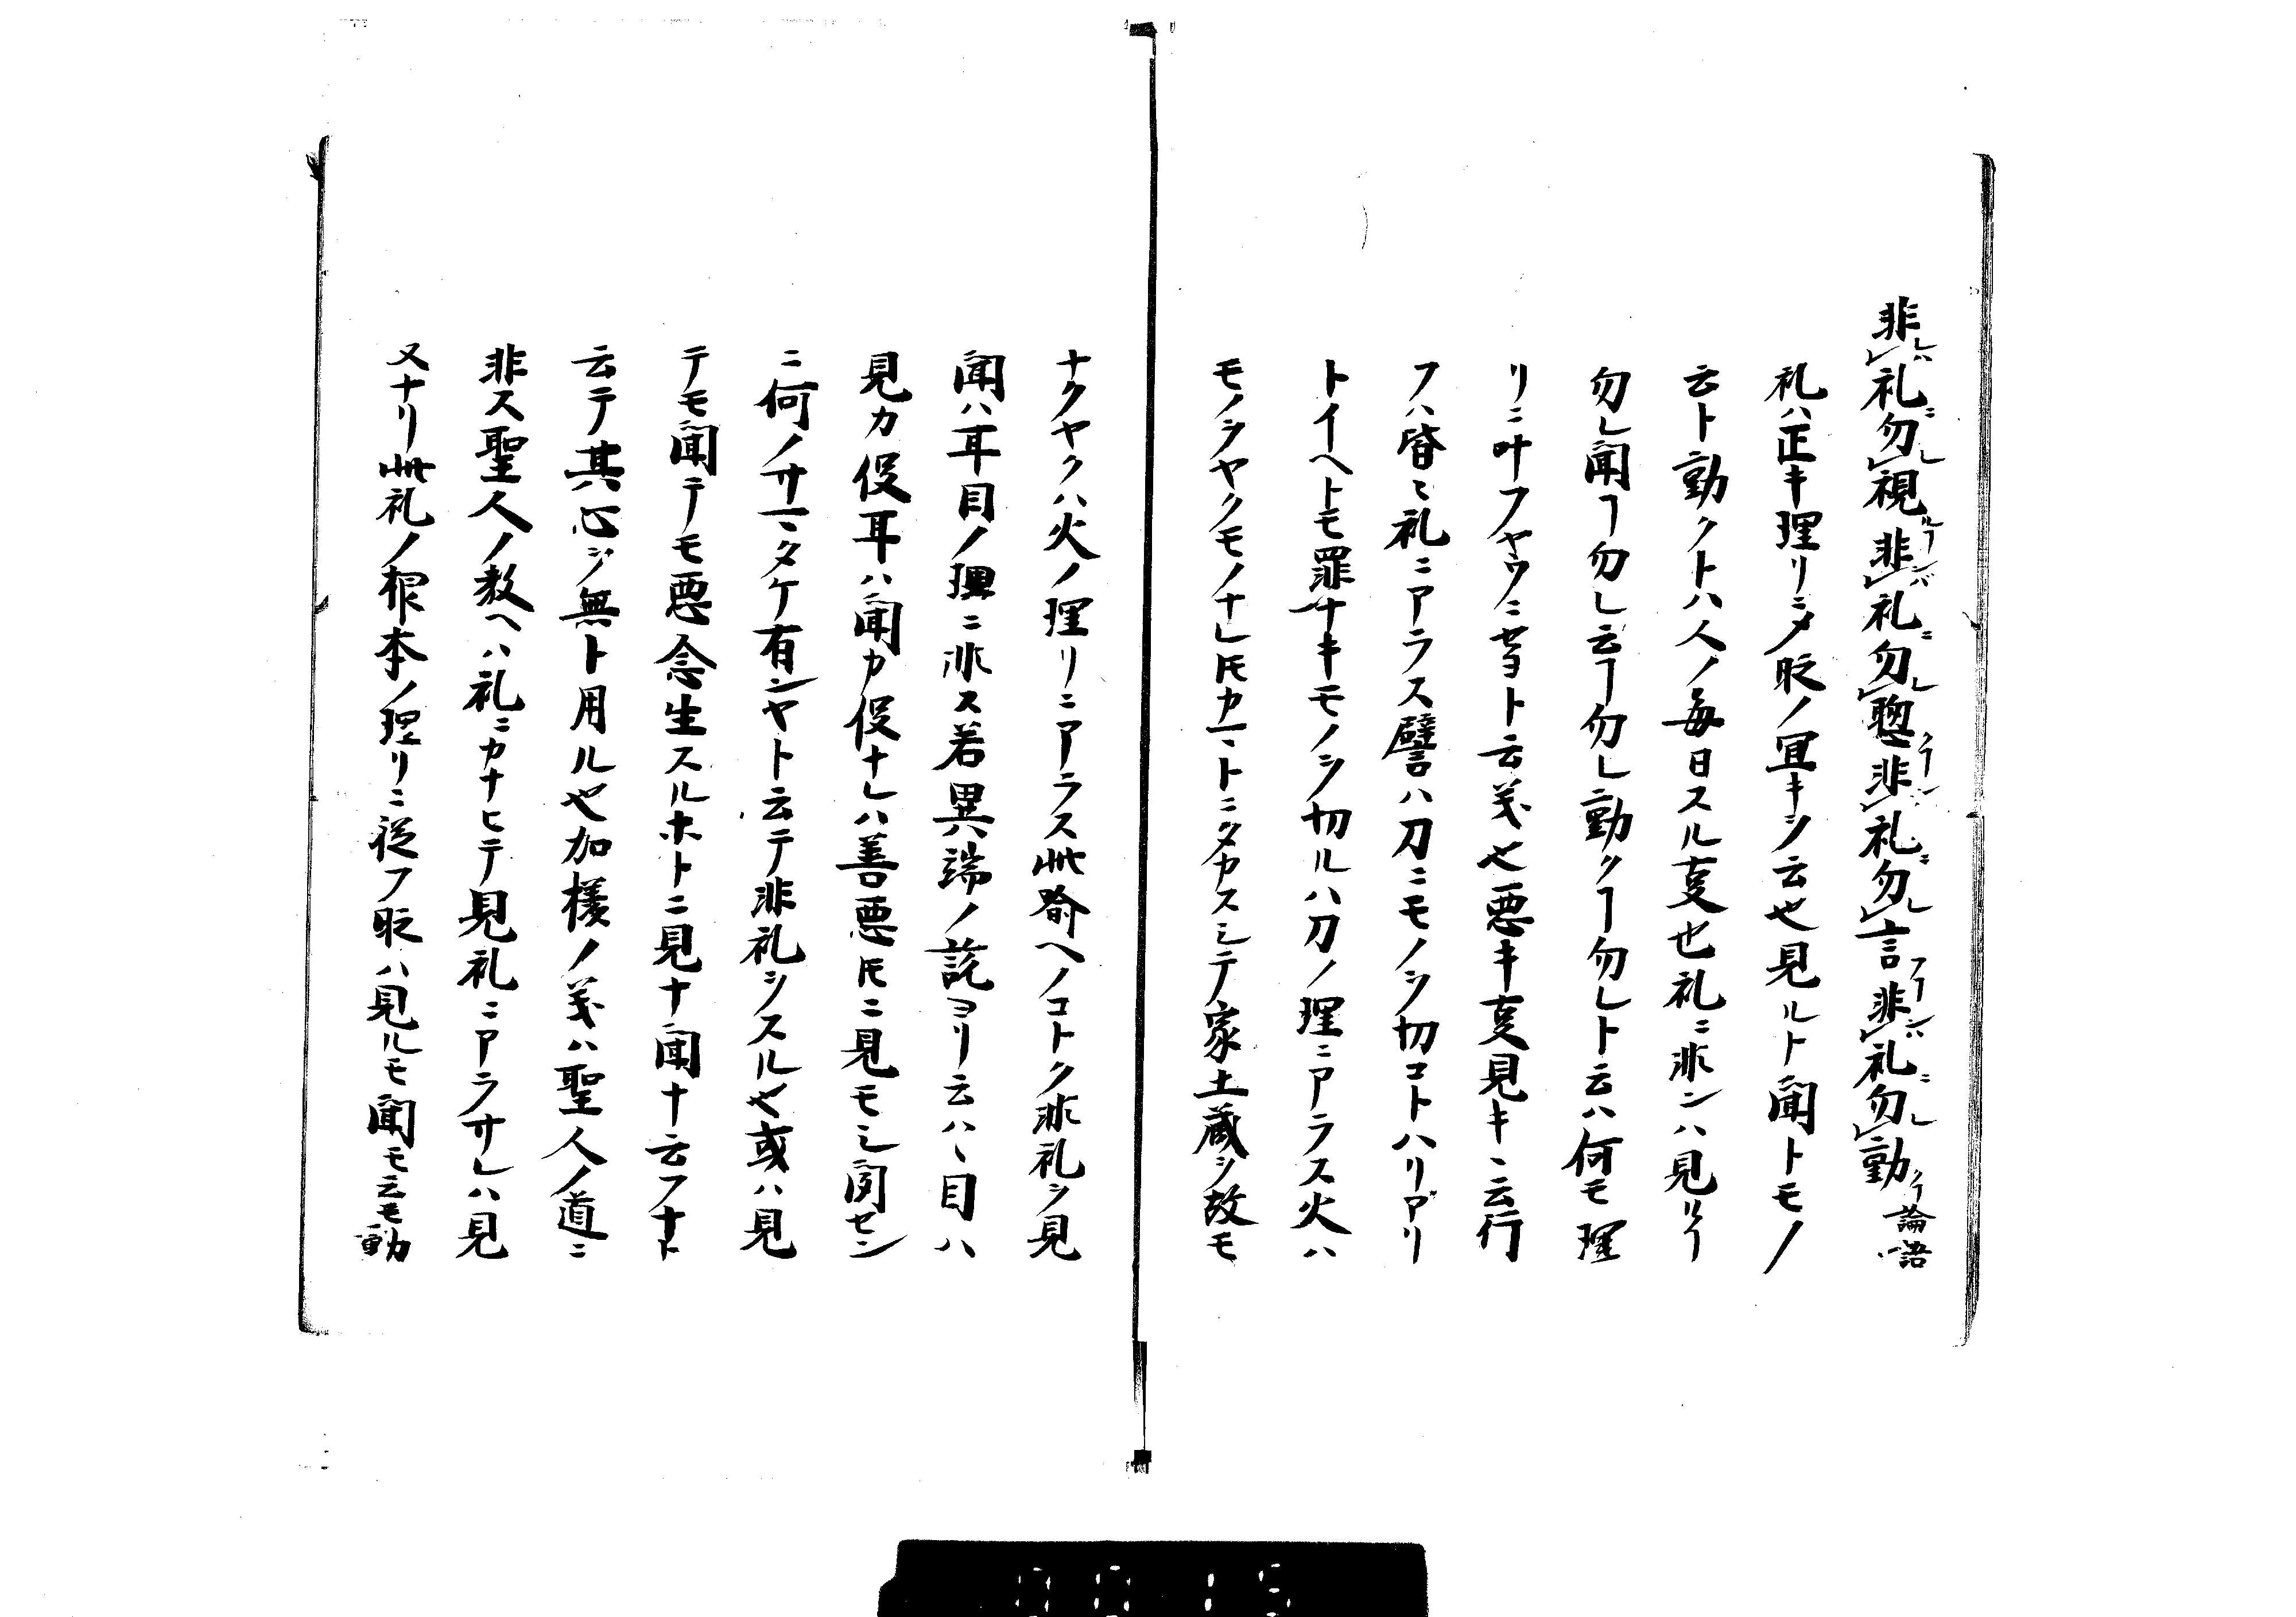 非礼勿視非礼勿聴非礼勿言非礼勿動 論語
礼ハ正キ理リニタ眨ノ宜キヲ云也見ルト聞トモノ
云ト動クトハ人ノ毎日スル㕝也礼ニ非ンハ見ルヿ
勿レ聞ヿ勿レ云ヿ勿レ動クヿ勿レト云ハ何モ理
リニ叶フヤウニセヨト云義也悪キ㕝見キヽ云行
フハ皆々礼ニアラス譬ハ刀ニモノヲ切コトハリアリ
トイヘトモ罪ナキモノヲ切ルハ刀ノ理ニアラス火ハ
モノヲヤクモノナレ𪜈カマトニタカスシテ家土蔵ヲ故モ
ナクヤクハ火ノ理リニアラス此喩ヘノコトク非礼ヲ見
聞ハ耳目ノ理ニ非ス若異端ノ説ヨリ云ハヽ目ハ
見カ役耳ハ聞カ役ナレハ善悪𪜈ニ見モシ聞セン
ニ何ノサマタケ有ンヤト云テ非礼ヲスル也或ハ見
テモ聞テモ悪念生スルホトニ見ナ聞ナ云フナト
云テ其心ヲ無ト用ル也加様ノ義ハ聖人ノ道ニ
非ス聖人ノ教ヘハ礼ニカナヒテ見礼ニアラサレハ見
又ナリ此礼ノ根本ノ理リニ従フ眨ハ見ルモ聞モ云モ動